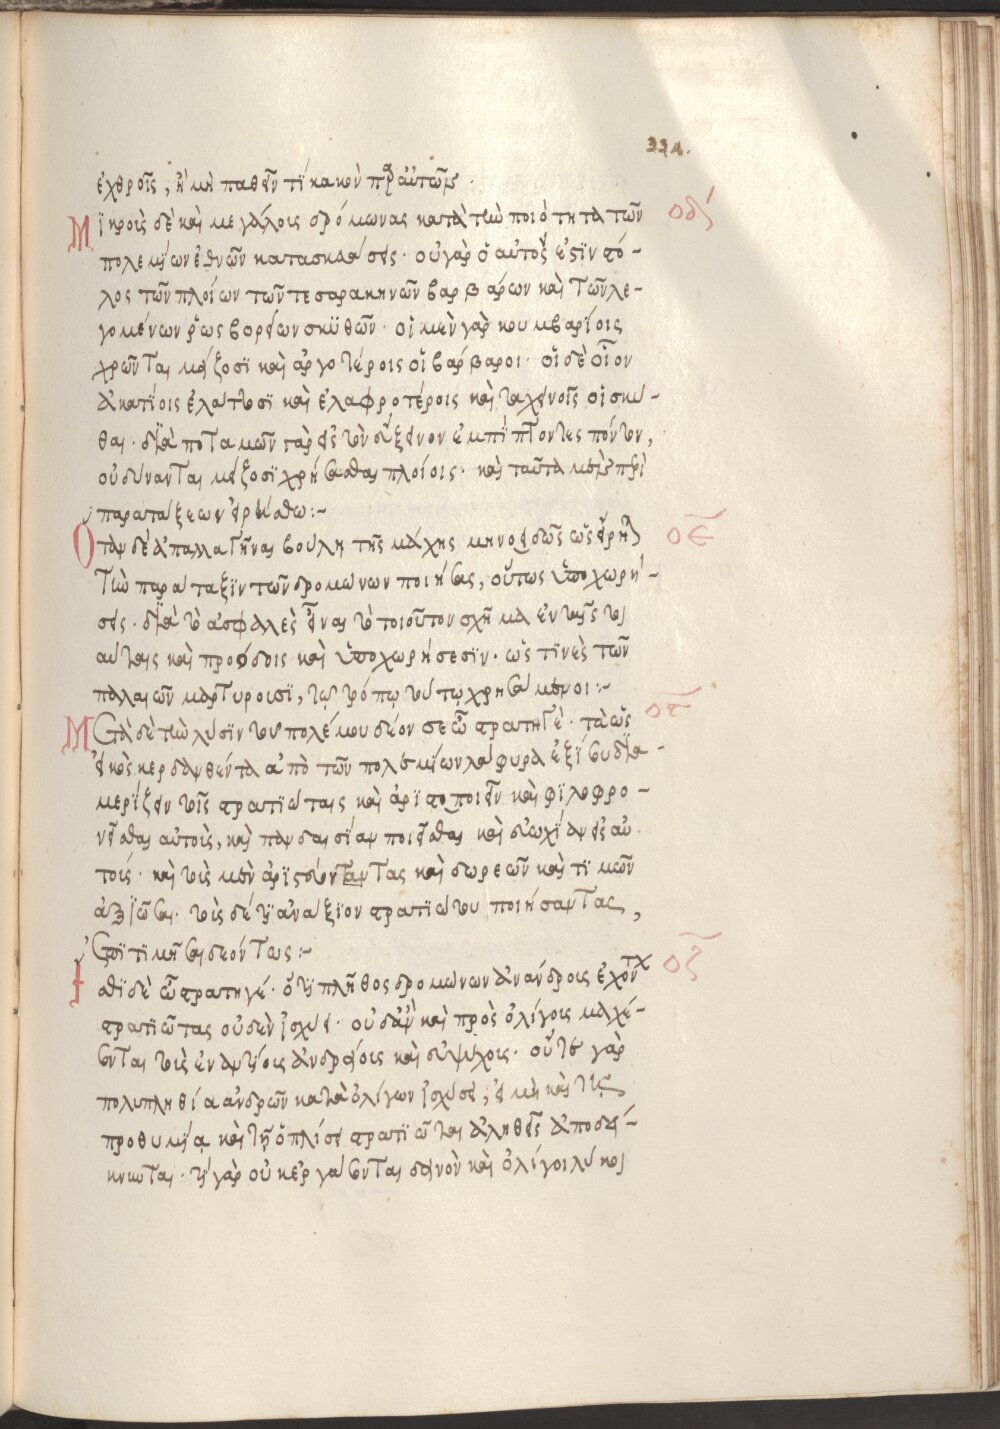 334.
ἐχθροῖς, ἢ μὴ παθεῖν τϊ κακὸν παρ' αὐτῶν.
Μϊκροὺς δὲ καὶ μεγάλοις δρόμωνας κατὰ τὴν ποιότητα τῶν
οδ
πολεμΐων ἐθνῶν κατασκευάσεις· οὐ γὰρ ὁ αὐτός ἐστϊν στό-
λος τῶν πλοίων τῶν τε σαρακηνῶν βαρβάρων καὶ τῶν λε-
γομένων ῥῶς βορείων σκϋθῶν· οἱ μὲν γὰρ κουμβαρΐοις
χρῶνται μείζοσϊ καὶ ἀργοτέροις οἱ βάρβαροι· οἱ δὲ οἷον
ἀκατΐοις ἐλάττοσϊ καὶ ἐλαφροτέροις καὶ ταχεινοῖς οἱ σκύ-
θαι· διὰ ποταμῶν γὰρ εἰς τὸν εὔξεινον ἐμπΐπτοντες πόντον,
οὐ δύνανται μείζοσϊ χρήσασθαι πλοίοις· καὶ ταῦτα μὲν περὶ
παρατάξεων εἰρήσθω:-
Ὅταν δὲ ἀπαλλαγῆναι βούλῃ τῆς μάχης μηνοειδῶς ὡς εἴρηται
οε
τὴν παράταξϊν τῶν δρομώνων ποιήσας, οὕτως ὑποχωρή-
σεις· διὰ τὸ ἀσφαλὲς εἶναι τὸ τοιοῦτον σχῆμα ἐν ταῖς τοι
αύταις καὶ προσόδοις καὶ ὑποχωρήσεσϊν· ὥς τϊνὲς τῶν
παλαιῶν μαρτυροισϊ, τῷ τρόπῳ τούτῳ χρησάμενοι:-
Μετὰ δὲ τὴν λύσϊν τοῦ πολέμου δέον σε ὦ στρατηγὲ· τὰ ὡς
οϛ
εἰκὸς κερδανθέντα ἀπὸ τῶν πολεμΐων λάφυρα ἐξΐσου δια-
μερίζειν τοῖς στρατϊώταις καὶ ἀρϊστοποιεῖν καὶ φϊλοφρο-
νεῖσθαι αὐτοὺς, καὶ πανδαισΐαν ποιεῖσθαι καὶ εὐωχΐαν εἰς αὐ
τούς· καὶ τοὺς μὲν ἀρϊστεύσαντας καὶ δωρεῶν καὶ τϊμῶν
ἀξϊῶσαι· τοὺς δέ τϊ ἀνάξϊον στρατϊώτου ποιήσαντας,
ἐπϊτϊμῆσαι δεόντως:-
Ἴσθϊ δὲ ὦ στρατηγέ· ὅτϊ πλῆθος δρομώνων ἀνάνδροις ἔχοντα
οζ
στρατϊώτας οὐδὲν ἰσχύει· οὐδ' ἂν καὶ πρὸς ὀλίγοις μαχέ-
σονται τοὺς ἐναντΐοις ἀνδρείοις καὶ εὐψύχοις· οὔτε γὰρ
πολυπληθία ἀνδρῶν κατὰ ὀλίγων ἰσχύσει, εἰ μὴ καὶ τῇ
προθυμΐᾳ καὶ τῇ ὁπλίσει στρατϊῶται ἀληθεῖς ἀποδεί-
κνυνται· τϊ γὰρ οὐκ ἐργάσονται δεινὸν καὶ ὀλίγοι λύκοι